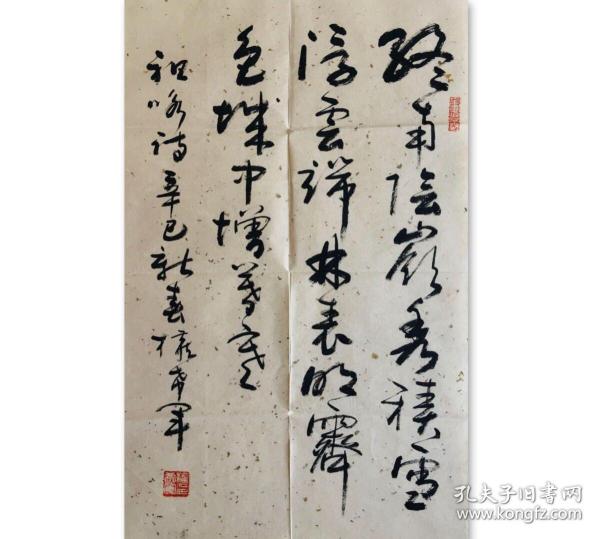 終南陰嶺秀積雪
浮雲端林表明霽
色城中增暮寒
祖咏詩辛巳新春權希軍
孔夫子旧书网
www.kongfz.com